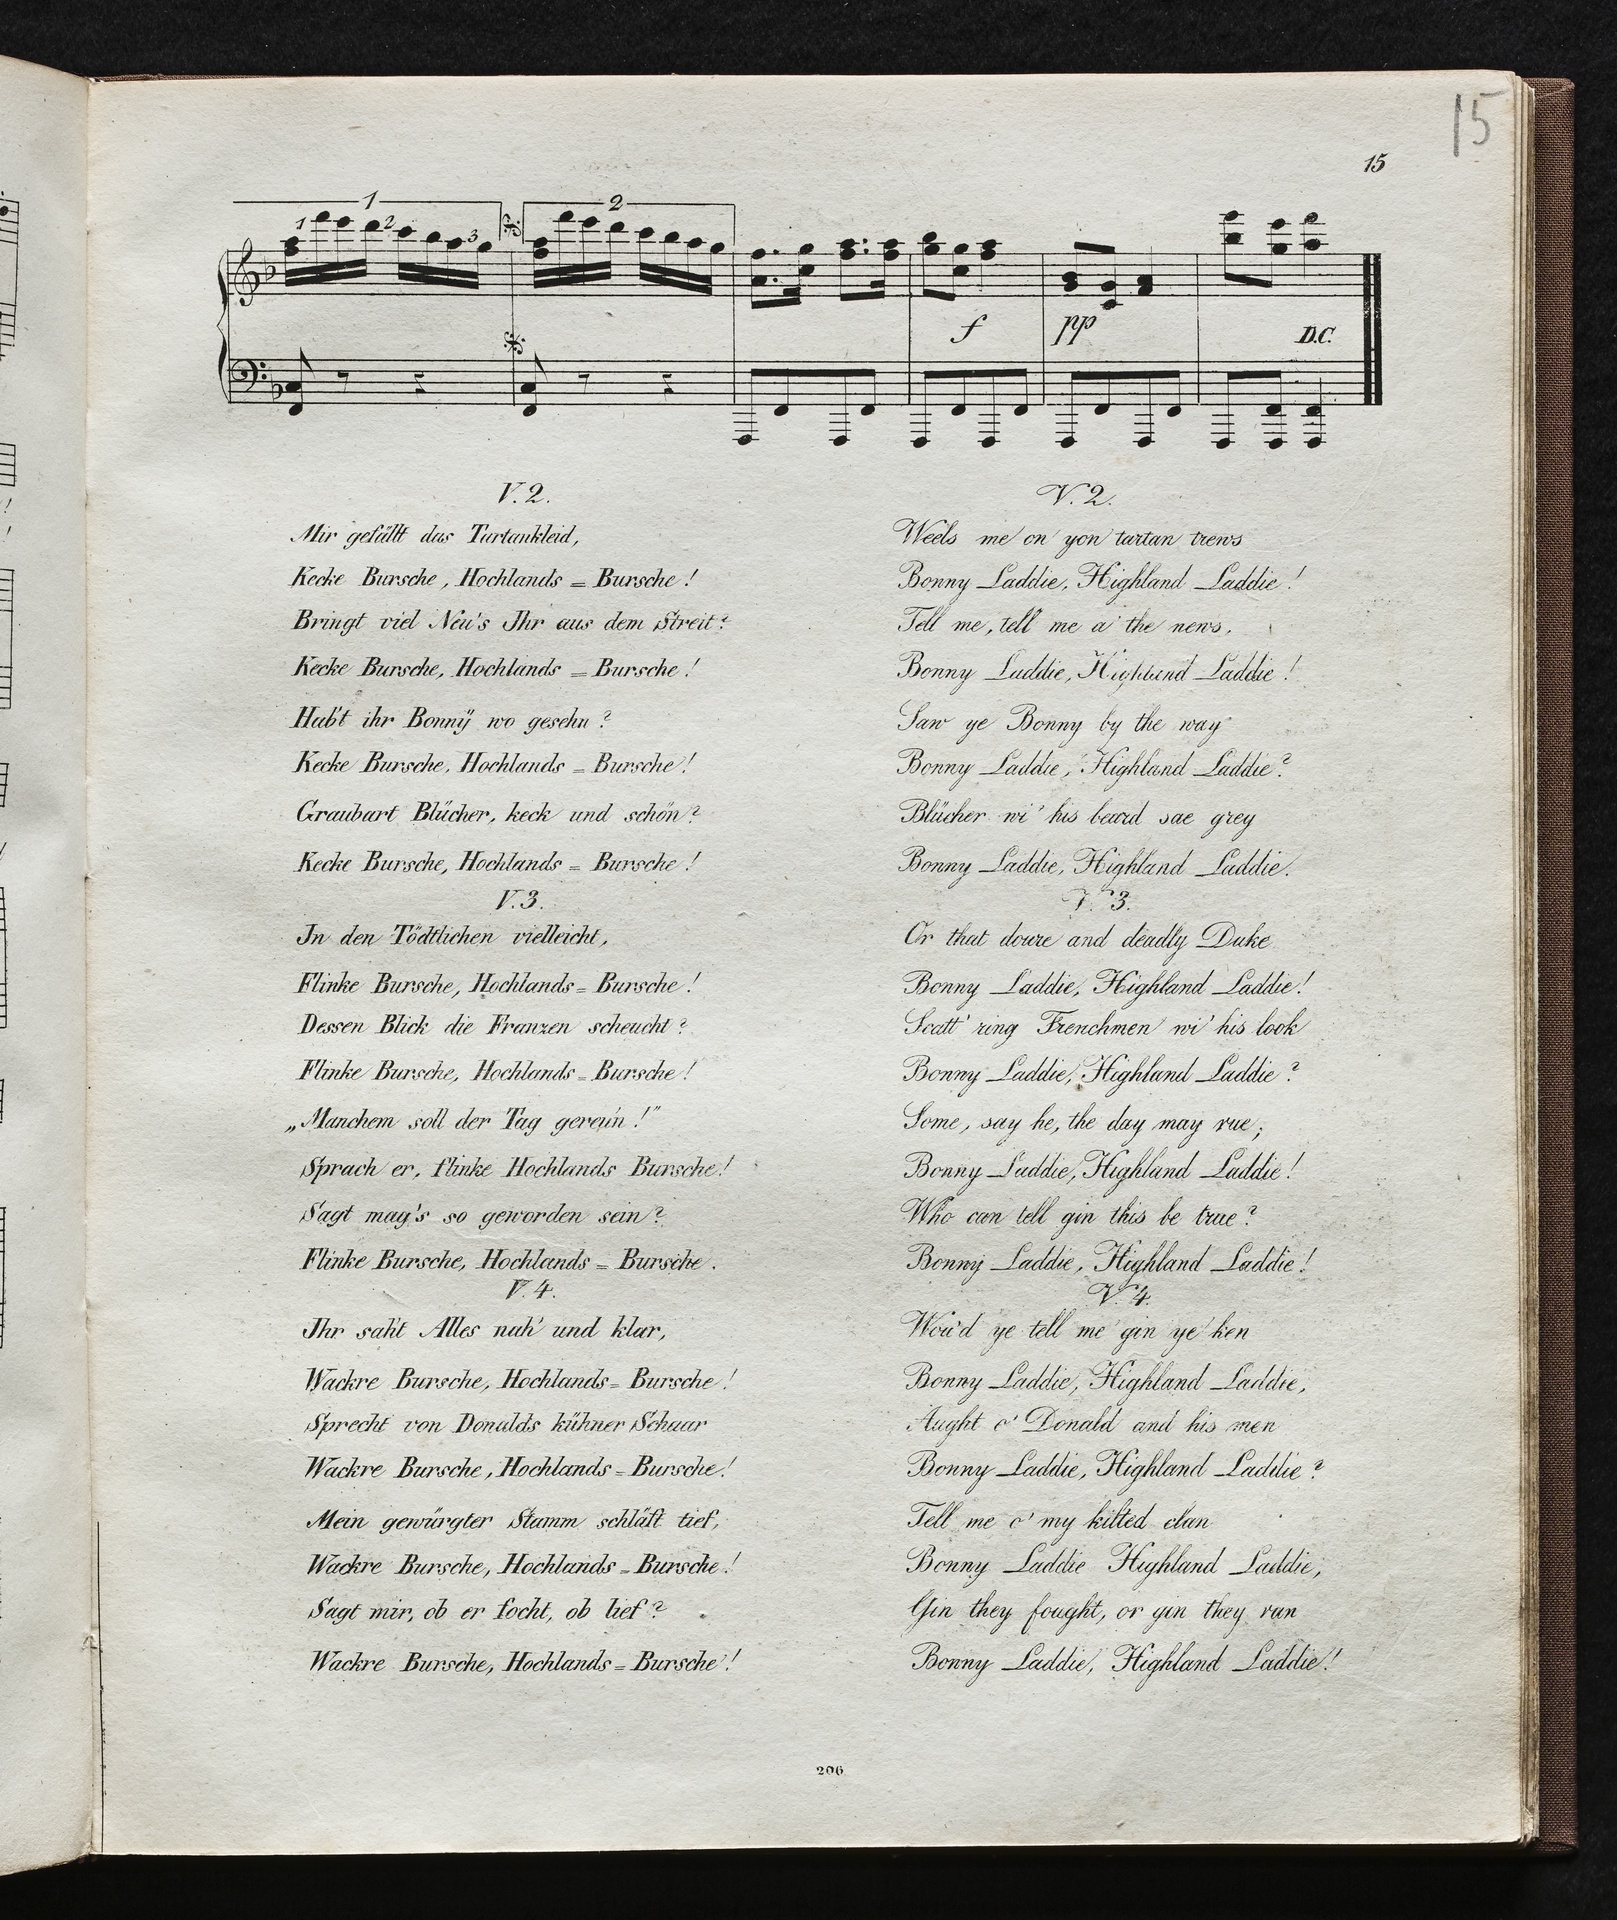 15
15
1 2
1 2 3
f pp D.C.
V. 2.
Mir gefällt das Tartankleid,
Kecke Bursche, Hochlands = Bursche!
Bringt viel Neu's Jhr aus dem Streit?
Kecke Bursche, Hochlands = Bursche!
Habt ihr Bonnÿ wo gesehn?
Kecke Bursche, Hochlands = Bursche!
Graubart Blücher, keck und schön?
Kecke Bursche, Hochlands = Bursche!
V. 3.
Jn den Tödtlichen vielleicht,
Flinke Bursche, Hochlands = Bursche!
Dessen Blick die Franzen scheucht?
Flinke Bursche, Hochlands = Bursche!
„Manchem soll der Tag gereu'n!"
Sprach er, flinke Hochlands Bursche!
Sagt mag's so geworden sein?
Flinke Bursche, Hochlands = Bursche.
V. 4.
Jhr saht Alles nah' und klar,
Wackre Bursche, Hochlands = Bursche!
Sprecht von Donalds kühner Schaar
Wackre Bursche, Hochlands = Bursche!
Mein gewürgter Stamm schläft tief,
Wackre Bursche, Hochlands = Bursche!
Sagt mir, ob er focht, ob lief?
Wackre Bursche, Hochlands = Bursche!
V. 2.
Weels me on yon tartan trews
Bonny Laddie, Highland Laddie!
Tell me, tell me a' the news,
Bonny Laddie, Highland Laddie!
Saw ye Bonny by the way
Bonny Laddie, Highland Laddie?
Blücher wi' his beard sae grey
Bonny Laddie, Highland Laddie.
V. 3.
Or that doure and deadly Duke
Bonny Laddie, Highland Laddie!
Scatt'ring Frenchmen wi' his look
Bonny Laddie, Highland Laddie?
Some, say he, the day may rue;
Bonny Laddie, Highland Laddie!
Who can tell gin this be true?
Bonny Laddie, Highland Laddie!
V. 4.
Wou'd ye tell me gin ye ken
Bonny Laddie, Highland Laddie,
Aught o' Donald and his men
Bonny Laddie, Highland Laddie?
Tell me o' my kilted clan
Bonny Laddie Highland Laddie,
Gin they fought, or gin they ran
Bonny Laddie, Highland Laddie!
206